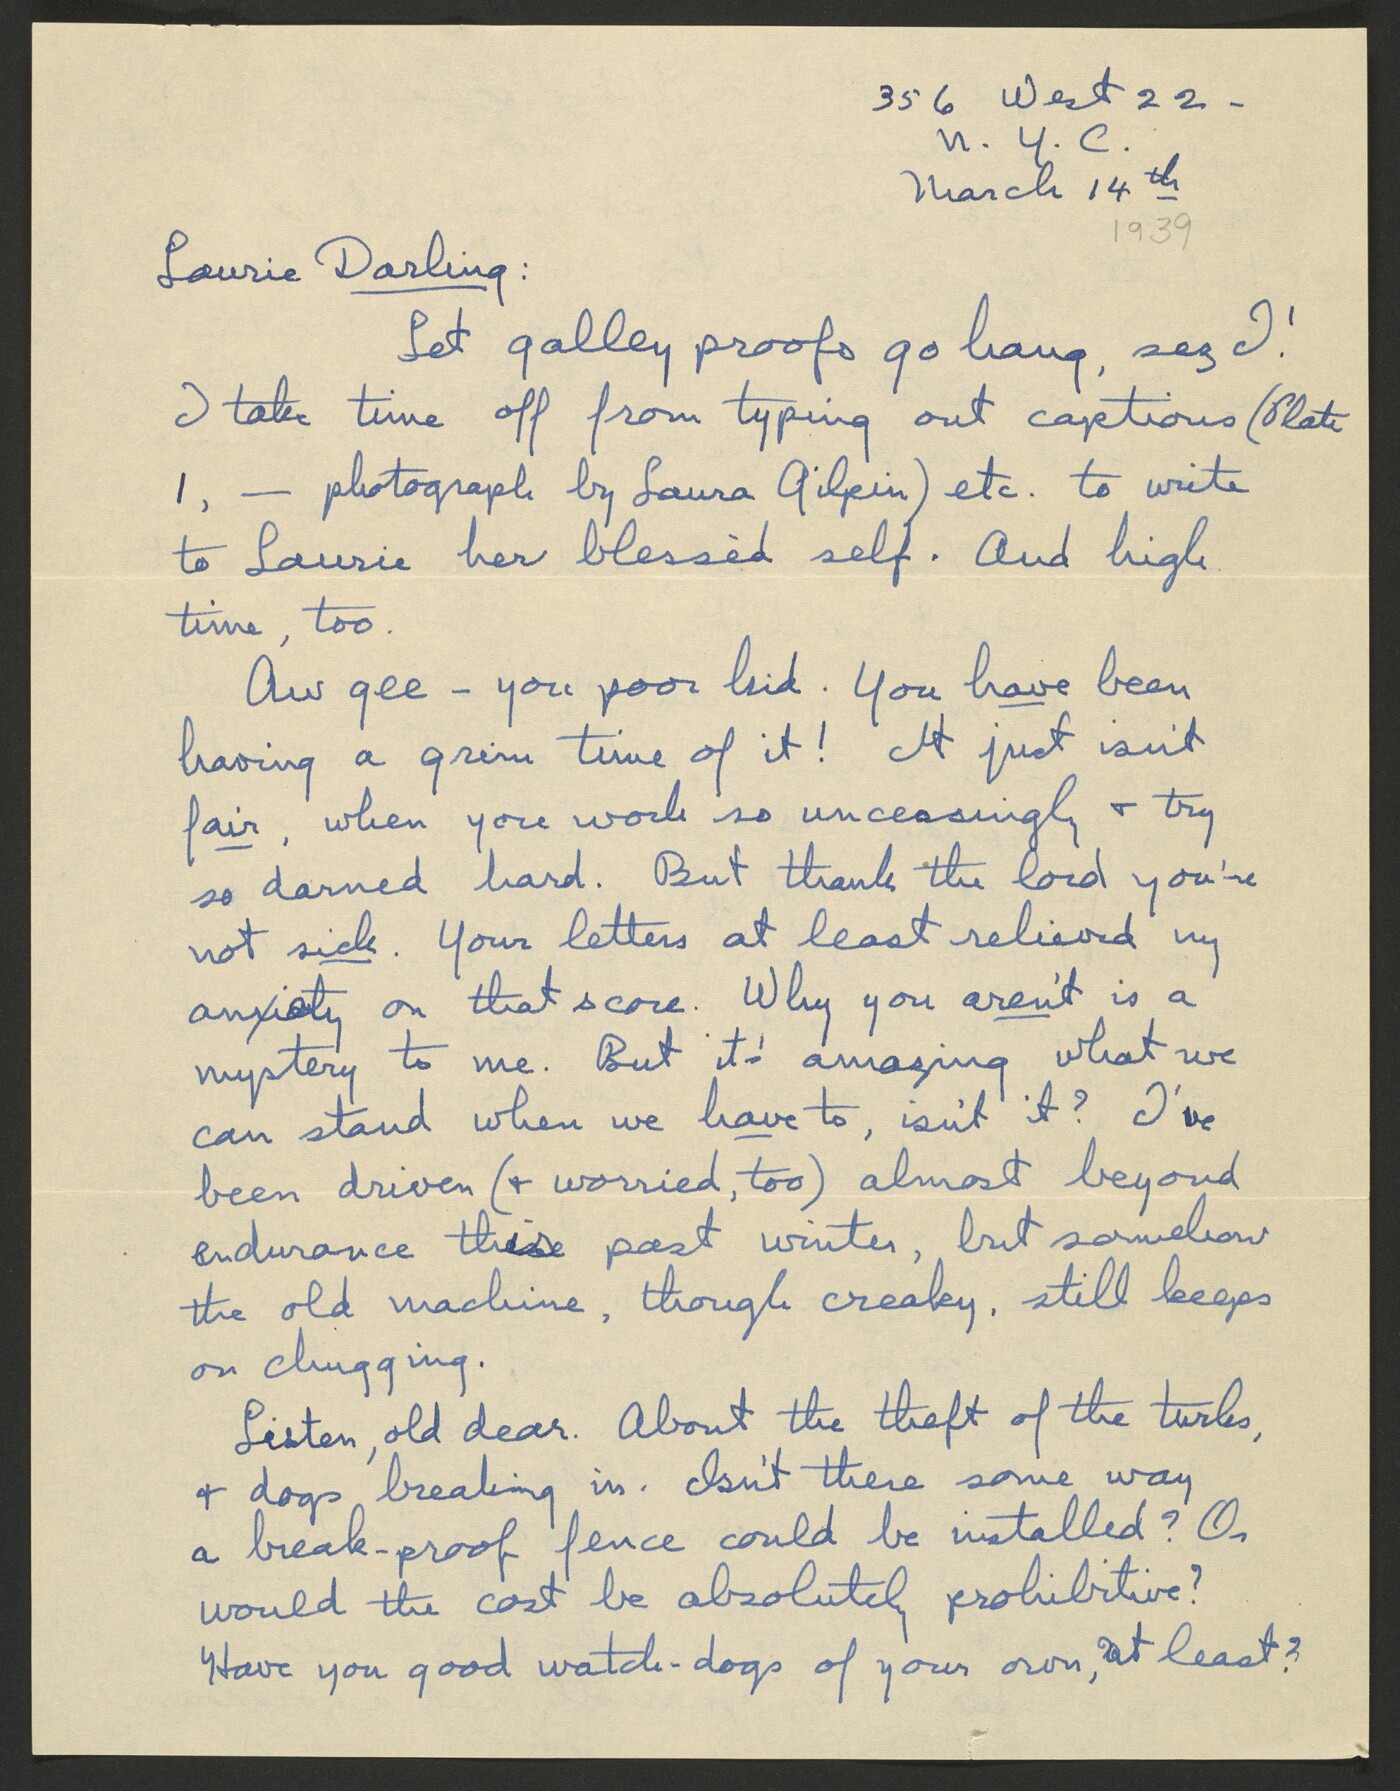 356 West 22 -
N. Y. C.
March 14th
1939
Laurie Darling:
Let galley proofs go hang, sez I!
I take time off from typing out captions (Plate
1, — photograph by Laura Gilpin) etc. to write
to Laurie her blessèd self. And high
time, too.
Aw gee - you poor kid. You have been
having a grim time of it! It just isn't
fair, when you work so unceasingly & try
so darned hard. But thank the lord you're
not sick. Your letters at least relieved my
anxiety on that score. Why you aren't is a
mystery to me. But it's amazing what we
can stand when we have to, isn't it? I've
been driven (& worried, too) almost beyond
endurance this past winter, but somehow
the old machine, though creaky, still keeps
on chugging.
Listen, old dear. About the theft of the turks,
& dogs breaking in. Isn't there some way
a break-proof fence could be installed? Or
would the cost be absolutely prohibitive?
Have you good watch-dogs of your own, at least?